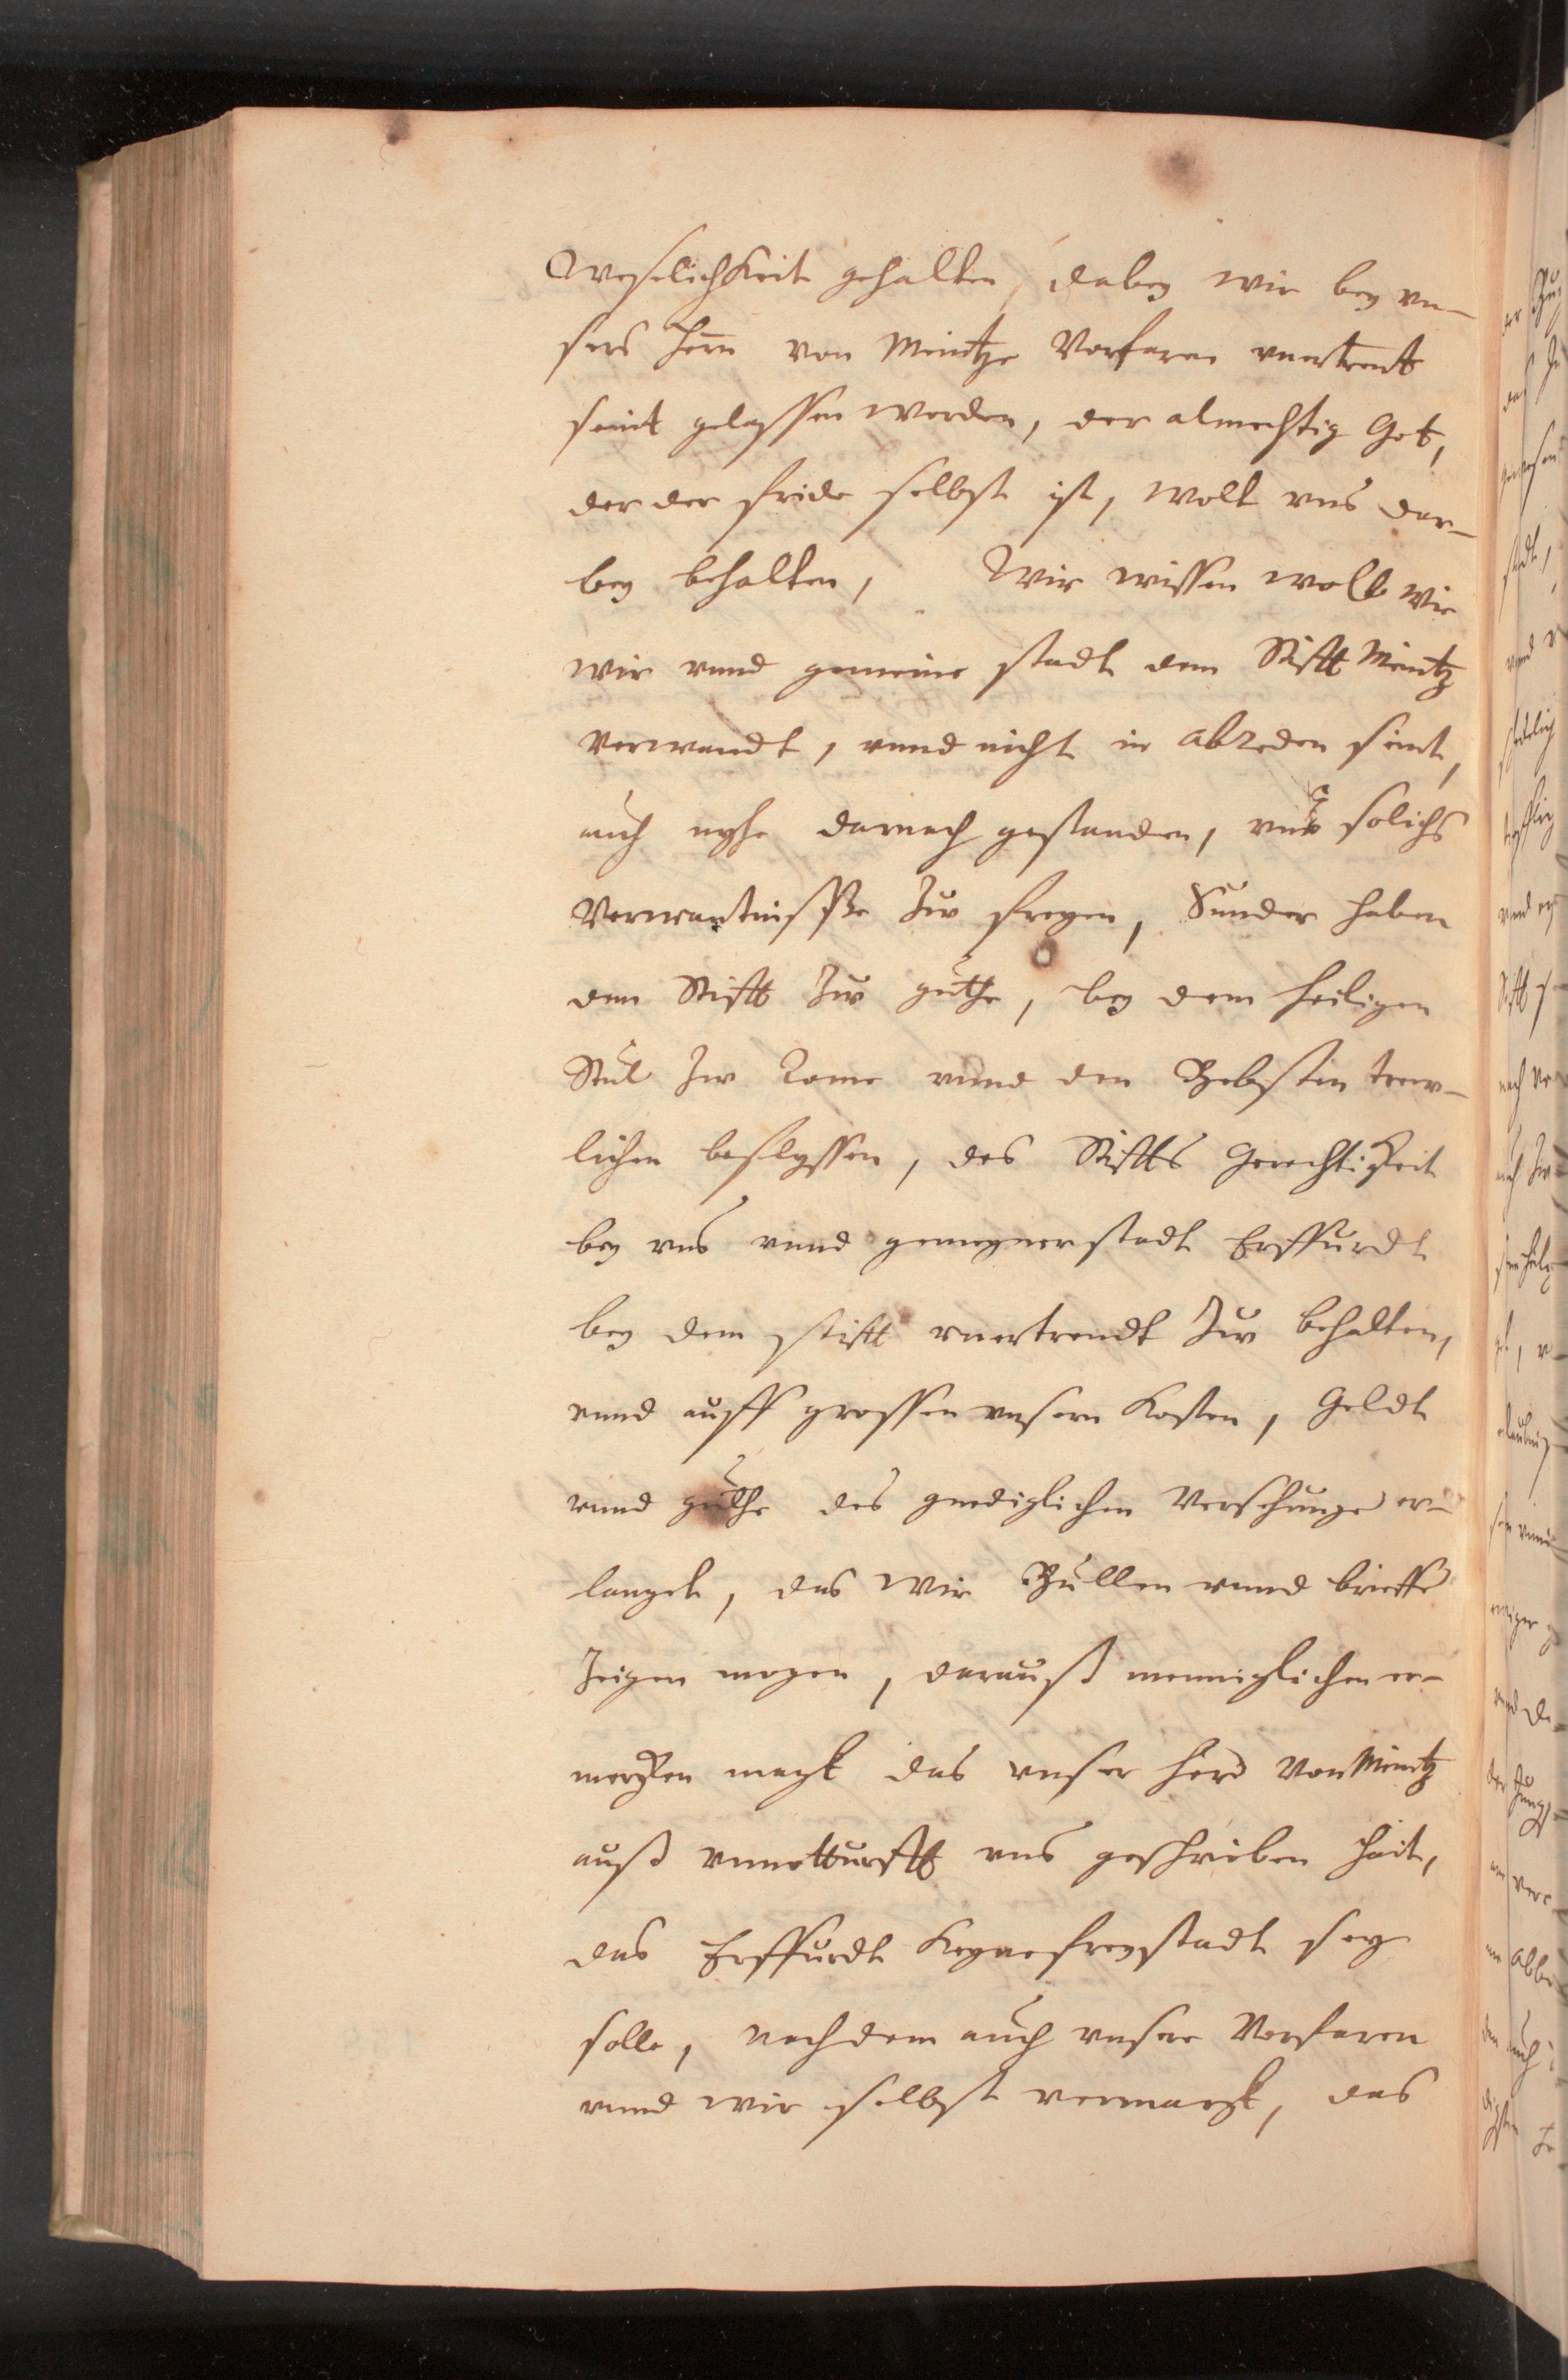 Weßlichkeit gehalten, dabey wir bey vn-
sers Hern von Meintze Vorfaren vnertrent
seint gelassen worden, der almechtig Got,
der der fride selbst ist, wolt vns dar-
bey behalten, Wir wissen woll wie
wir vnnd gemeine stadt dem Stifft Meintz
verwandt, vnnd nicht in abreden seint,
auch nyhe darnach gestanden, vns solichs
Verwantnisße zw freyen, Sunder haben
dem Stifft zw guthe, bey dem heiligen
Stul zw Rome vnnd den Bebsten trew-
lichen beflyssen, des Stiffts Gerechtikeit
bey vns vnnd gemeyner stadt Erffurdt
bey dem stifft vnertrendt zw behalten,
vnnd auff grossen vnsern kosten, Geldt
vnnd guthe des gnediglichen Versehunge er-
langet, das wir Bullen vnnd brieffe
zeigen mogen, darauß menniglichen er-
mercken magk das vnser Herr von Meintz
auß vnnotturfft vns geschrieben hait,
das Erffurdt keyne freystadt sey
solle, nachdem auch vnsere Vorfaren
vnnd wir selbst vermarckt, das